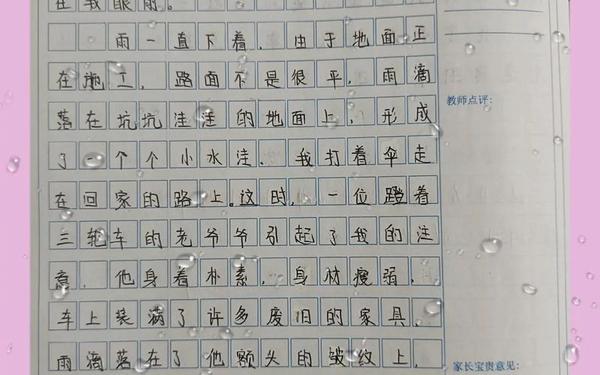 在我眼前。
雨一直下着，由于地面正
在施工，路面不是很平，雨滴
落在坑坑洼洼的地面上，形成
了一个个小水洼。我打着伞走
在回家的路上。这时，一位蹬着
三轮车的老爷爷引起了我的注
意，他身着朴素，身材瘦弱，
车上装满了许多废旧的家具，
雨滴落在了他额头的皱纹上，
教师点评：
家长宝贵意见：